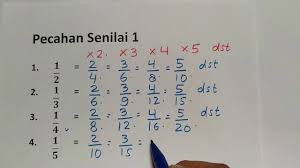 Pecahan Senilai 1
×2 ×3 ×4 ×5 dst
1. 1/2 = 2/4 = 3/6 = 4/8 = 5/10 dst
2. 1/3 = 2/6 = 3/9 = 4/12 = 5/15
3. 1/4 = 2/8 = 3/12 = 4/16 = 5/20 dst
4. 1/5 = 2/10 = 3/15 =